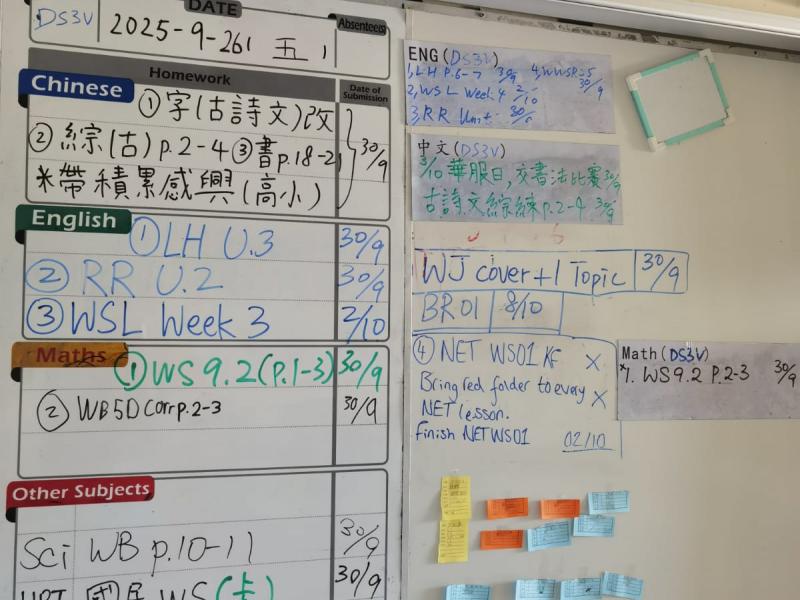 DATE
DS3V 2025-9-26 五
Absentees
Homework
Date of Submission
Chinese
①字(古詩文)改
②綜(古)p.2-4 ③書p.18-21
30/9
*帶積累感興(高小)
English
①LH U.3 30/9
②RR U.2 30/9
③WSL Week 3 2/10
Maths
①WS 9.2(p.1-3) 30/9
②WB5D Corr p.2-3 30/9
Other Subjects
Sci WB p.10-11 30/9
WS(卡) 30/9
ENG (DS3V)
1, LH P.6-7 30/9 4,
2, WSL Week 4 2/10 30/9
3, RR Unit
中文(DS3V)
3/10 華服日,交書法比賽 30/9
古詩文綜練p.2-4 30/9
WJ cover+1 Topic 30/9
BR01 8/10
④ NET WS01 KF X
Bring red folder to every X
NET lesson.
Finish NETWS01 02/10
Math (DS3V)
*1. WS9.2 P.2-3 30/9